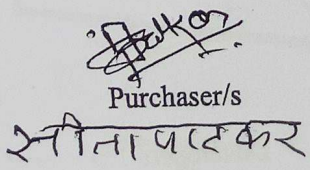 Purchaser/s
सीता पाटकर